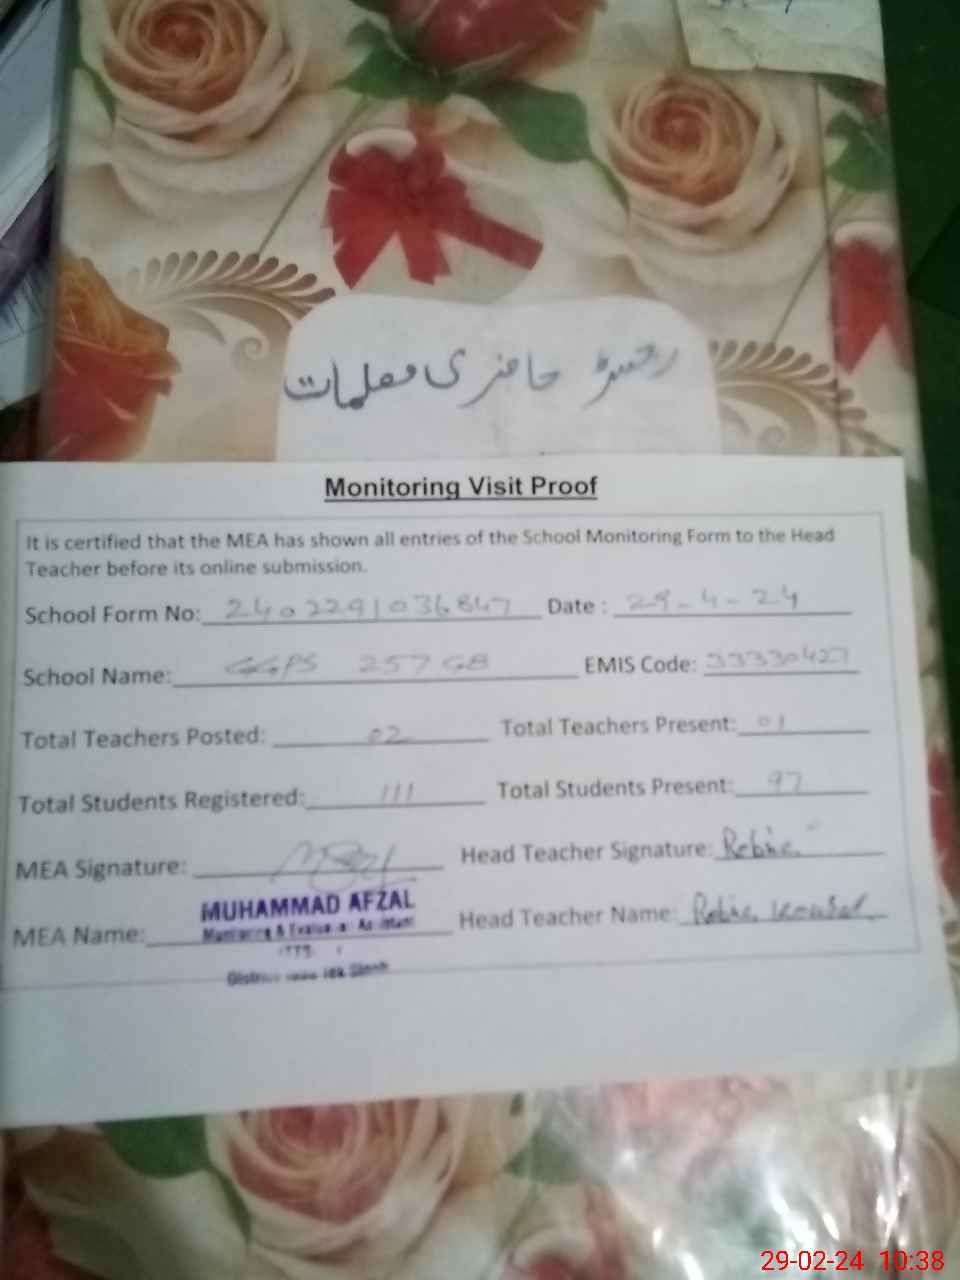 رجسٹر حاضری معلمات
Monitoring Visit Proof
It is certified that the MEA has shown all entries of the School Monitoring Form to the Head
Teacher before its online submission.
School Form No: 2402291036847 Date : 29-4-24
School Name: GGPS 257 GB EMIS Code: 33330427
Total Teachers Posted: 02 Total Teachers Present: 01
Total Students Registered: 111 Total Students Present: 97
MEA Signature: Head Teacher Signature: Robina
MUHAMMAD AFZAL
MEA Name: Monitoring & Evaluation Assistant Head Teacher Name: Robina Kousar
District Toba Tek Singh
29-02-24 10:38